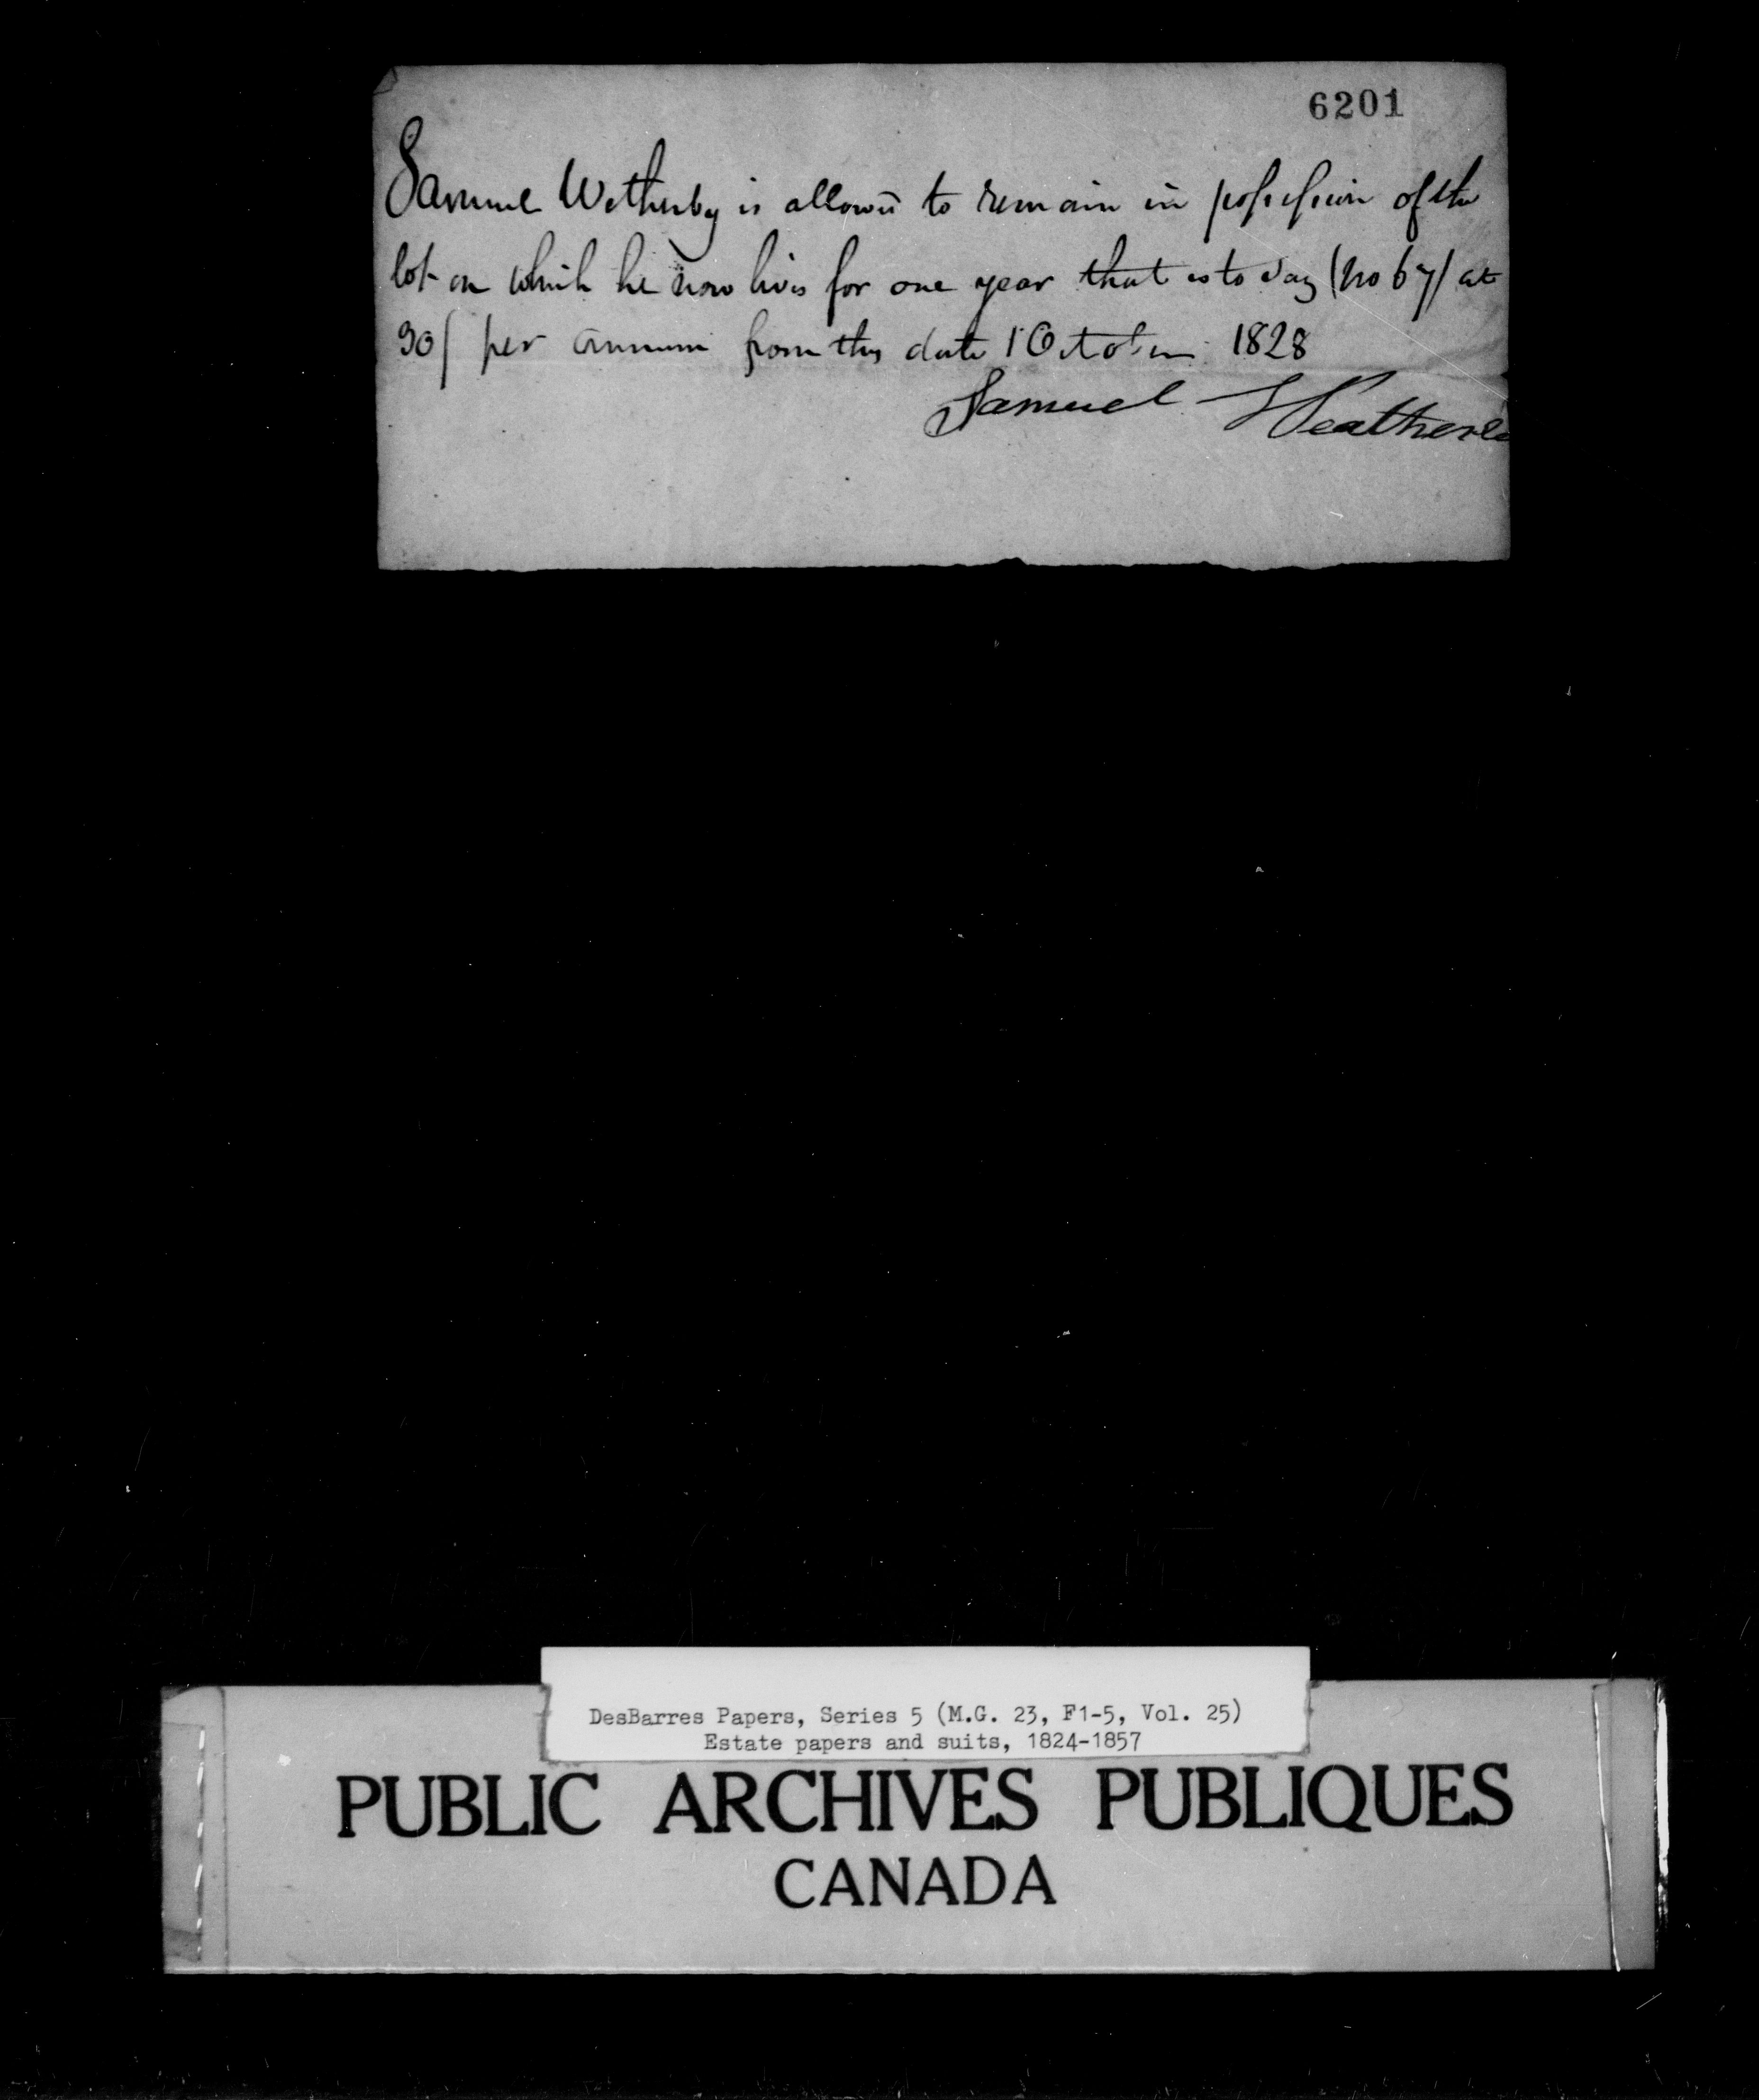 6201
Samuel Wetherby is allowed to remain in possession of the
lot on which he now lives for one year that is to say (No 67) at
30/ per annum from this date 1 October 1828
Samuel Weatherb
DesBarres Papers, Series 5 (M.G. 23, F1-5, Vol. 25)
Estate papers and suits, 1824-1857
PUBLIC ARCHIVES PUBLIQUES
CANADA